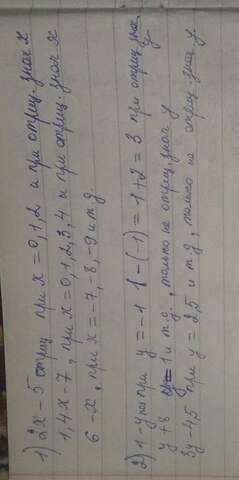 1) 2x-5 отриц при x=0,1,2 и при отриц. знач x
1,4x-7, при x=0,1,2,3,4 и при отриц. знач x
6-x, при x=-7,-8,-9 и т.д.
2) 1-y пол при y=-1 1-(-1)=1+2=3 при отриц знач y
y+8 1 и т.д., только не отриц. знач y
3y-4,5 при y=2,5 и т.д., только не отриц. знач y